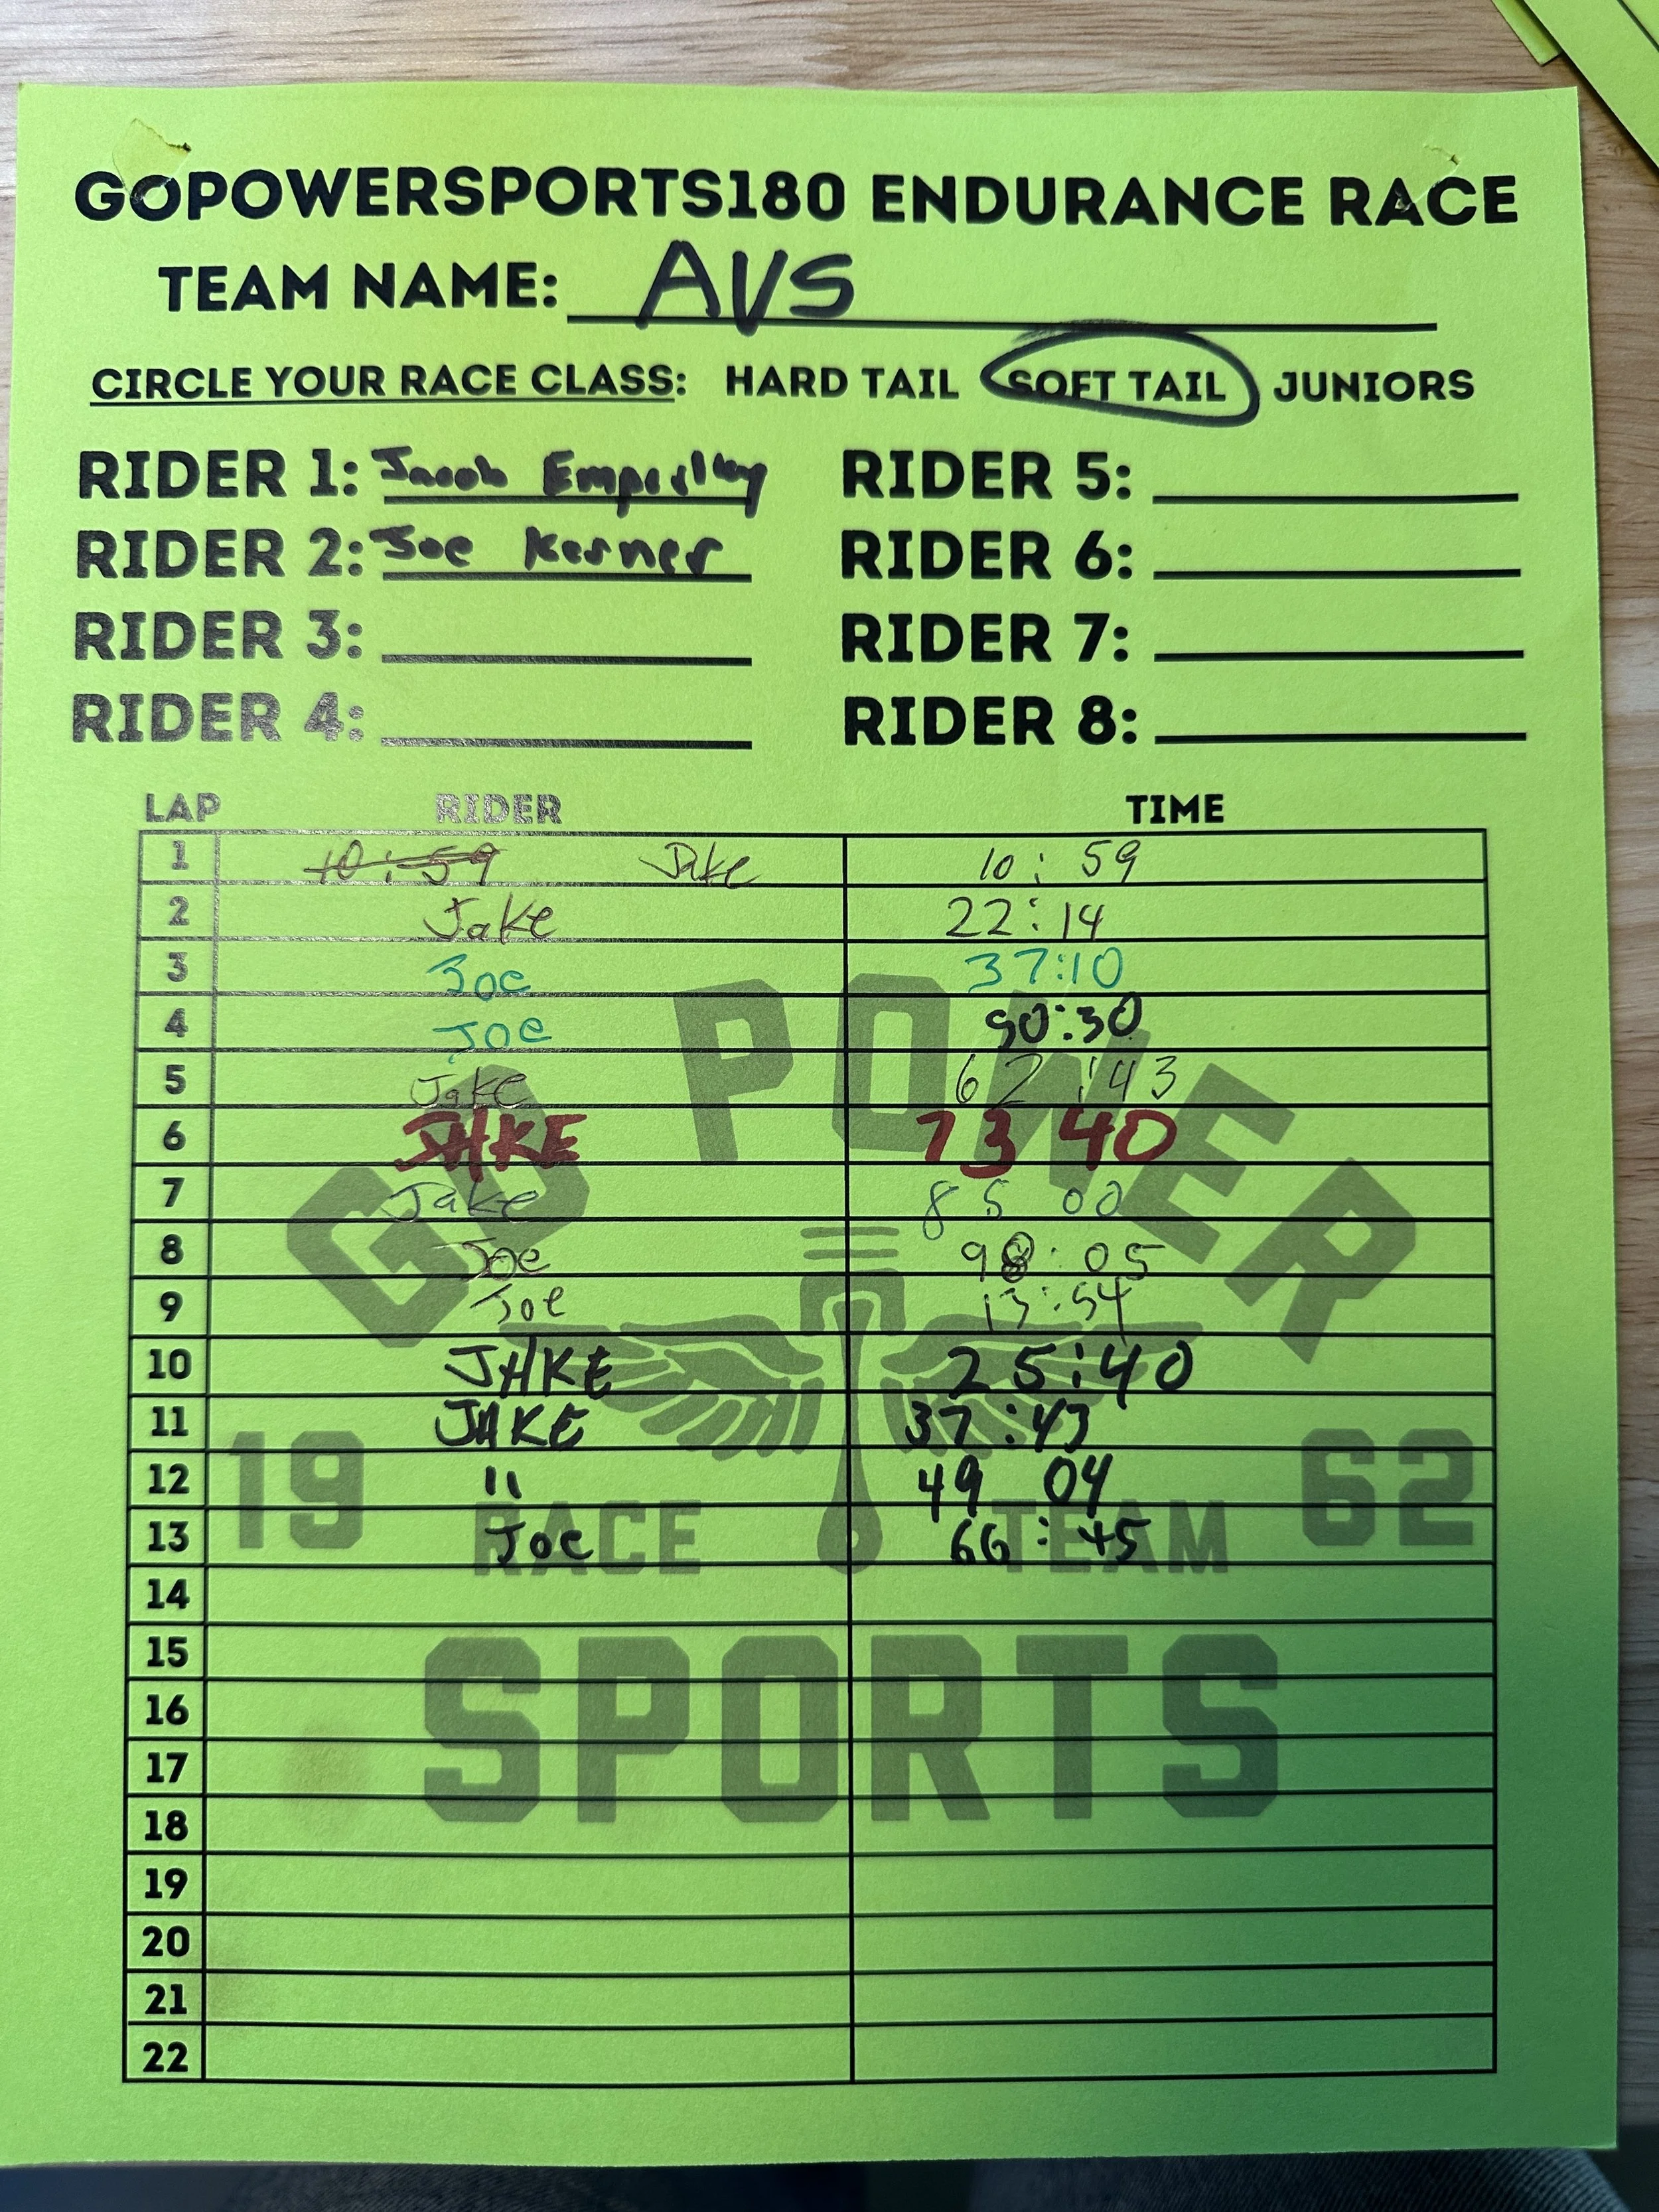 GOPOWERSPORTS180 ENDURANCE RACE
TEAM NAME: AVS
CIRCLE YOUR RACE CLASS: HARD TAIL SOFT TAIL JUNIORS
RIDER 1: Jacob RIDER 5:
RIDER 2: Joe Kerner RIDER 6:
RIDER 3: RIDER 7:
RIDER 4: RIDER 8:
LAP RIDER TIME
1 10:59 Jake 10:59
2 Jake 22:14
3 Joe 37:10
4 Joe 50:30
5 Jake 62:43
6 JAKE 73 40
7 Jake 85 00
8 Joe 98:05
9 Joe 13:54
10 JAKE 25:40
11 JAKE 37:43
12 " 49 04
13 Joe 66:45
14
15
16
17
18
19
20
21
22
GO POWER
19 62
RACE TEAM
SPORTS